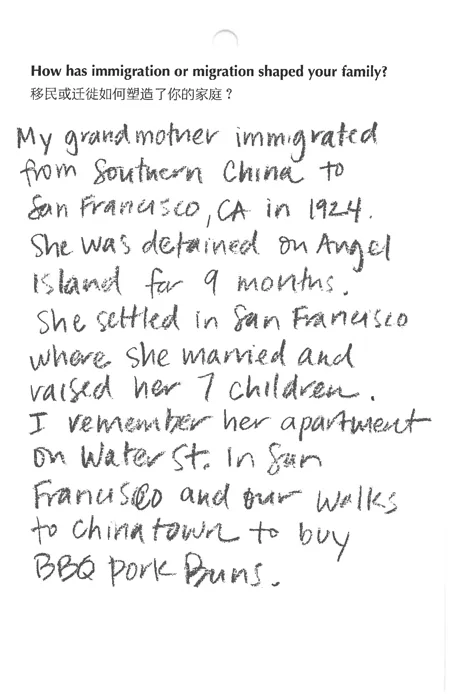 How has immigration or migration shaped your family?
移民或迁徙如何塑造了你的家庭？
My grandmother immigrated
from Southern China to
San Francisco, CA in 1924.
She was detained on Angel
Island for 9 months.
She settled in San Francisco
where she married and
raised her 7 children.
I remember her apartment
on Water St. in San
Francisco and our walks
to Chinatown to buy
BBQ pork Buns.